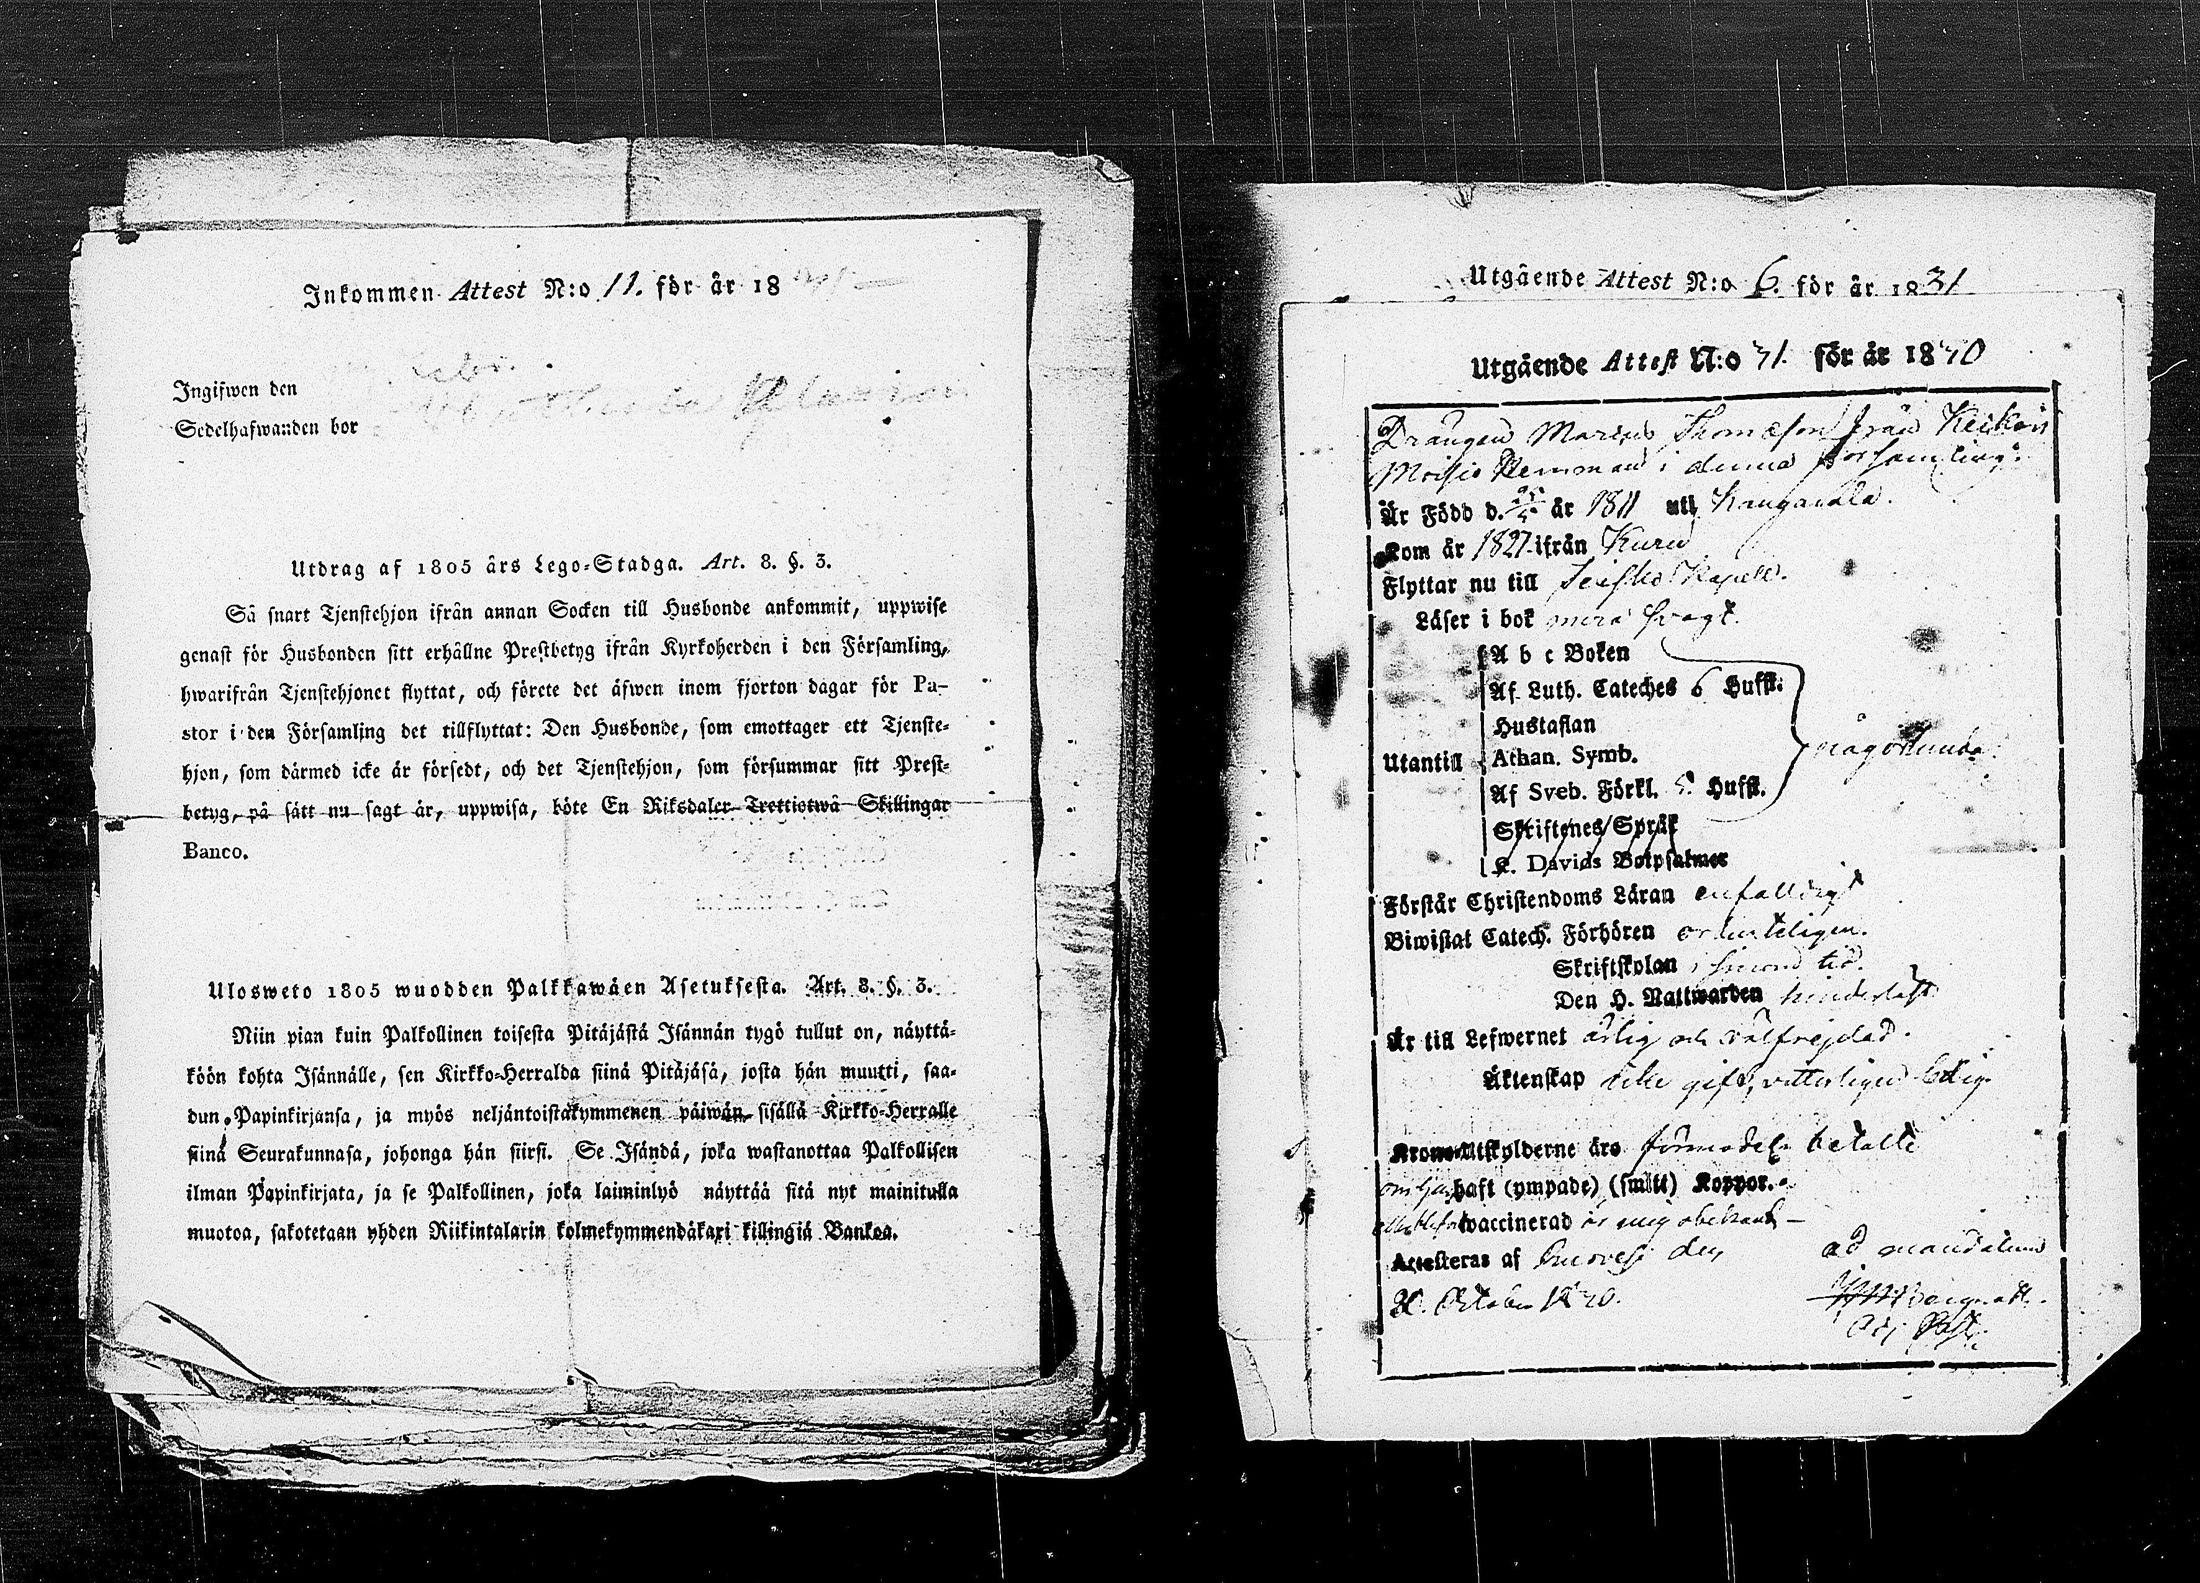 Inkommen Attest N:o 11. för år 18
Ingifwen den
Sedelhafwanden bor
Utdrag af 1805 års Lego-Stadga. Art. 8. §. 3.
Så snart Tjenstehjon ifrån annan Socken till Husbonde ankommit, uppwise
genast för Husbonden sitt erhållne Prestbetyg ifrån Kyrkoherden i den Församling,
hwarifrån Tjenstehjonet flyttat, och förete det äfwen inom fjorton dagar för Pa-
stor i den Församling det tillflyttat: Den Husbonde, som emottager ett Tjenste-
hjon, som därmed icke är försedt, och det Tjenstehjon, som försummar sitt Prest-
betyg, på sätt nu sagt är, uppwisa, böte En Riksdaler Trettiotwå Skillingar
Banco.
Ulosweto 1805 wuodden Palkkawäen Asetuksesta. Art. 8. §. 3.
Niin pian kuin Palkollinen toisesta Pitäjästä Isännän tygö tullut on, näyttä-
köön kohta Isännälle, sen Kirkko-Herralda siinä Pitäjäsä, josta hän muutti, saa-
dun Papinkirjansa, ja myös neljäntoistakymmenen päiwän sisällä Kirkko-Herralle
siinä Seurakunnasa, johonga hän siirsi. Se Isändä, joka wastanottaa Palkollisen
ilman Papinkirjata, ja se Palkollinen, joka laiminlyö näyttää sitä nyt mainitulla
muotoa, sakotetaan yhden Riikintalarin kolmekymmendäkaxi killingiä Bankoa.
Utgående Attest N:o 6. för år 1831
Utgående Attest N:o 41. för år 1840
Drängen Thomæson från
Moisio i denna församling.
Är Född d. år 1811 uti Kangasala.
Kom år 1827 ifrån Kuru
Flyttar nu till Kapell.
Läser i bok svagt.
A b c Boken
Af Luth. Cateches 6 Hufst.
Hustaflan
Utantill Athan. Symb. någorlunda.
Af Sveb. Förkl. 5. Hufst.
Skriftenes Språk
K. Davids Botpsalmer
Förstår Christendoms Läran enfalldigt
Biwistat Catech. Förhören ordenteligen.
Skriftskolan i sinom tid.
Den H. Nattwarden
Är till Lefwernet ärlig och välfrejdad.
Äktenskap icke gift, vitterligen ledig
Krono-Utskylderne äro förmodel. betalte
om han haft (ympade) (smitt) Koppor.
eller blifvit waccinerad är mig obekant –
Attesteras af den ad mandatum
October 1840.
Adj. Past.